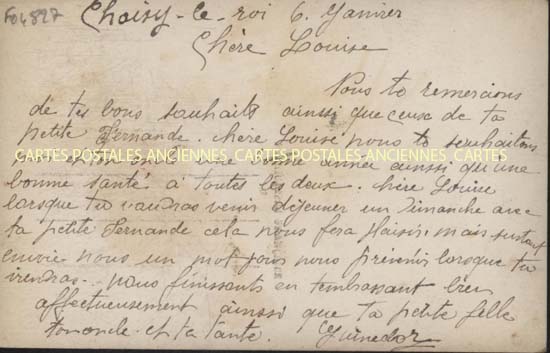 F04897
Choisy-le-roi 6 Janvier
Chère Louise
Nous te remercions
de tes bons souhaits ainsi que ceux de ta
petite Fernande. chère Louise nous te souhaitons
CARTES POSTALES ANCIENNES CARTES POSTALES ANCIENNES CARTES
année ainsi qu'une
bonne santé à toutes les deux. chère Louise
lorsque tu voudras venir déjeuner un Dimanche avec
ta petite Fernande cela nous fera plaisir. mais surtout
envoie nous un mot pour nous prévenir lorsque tu
viendras. nous finissons en t'embrassant bien
affectueusement ainsi que ta petite fille
ton oncle et ta tante.